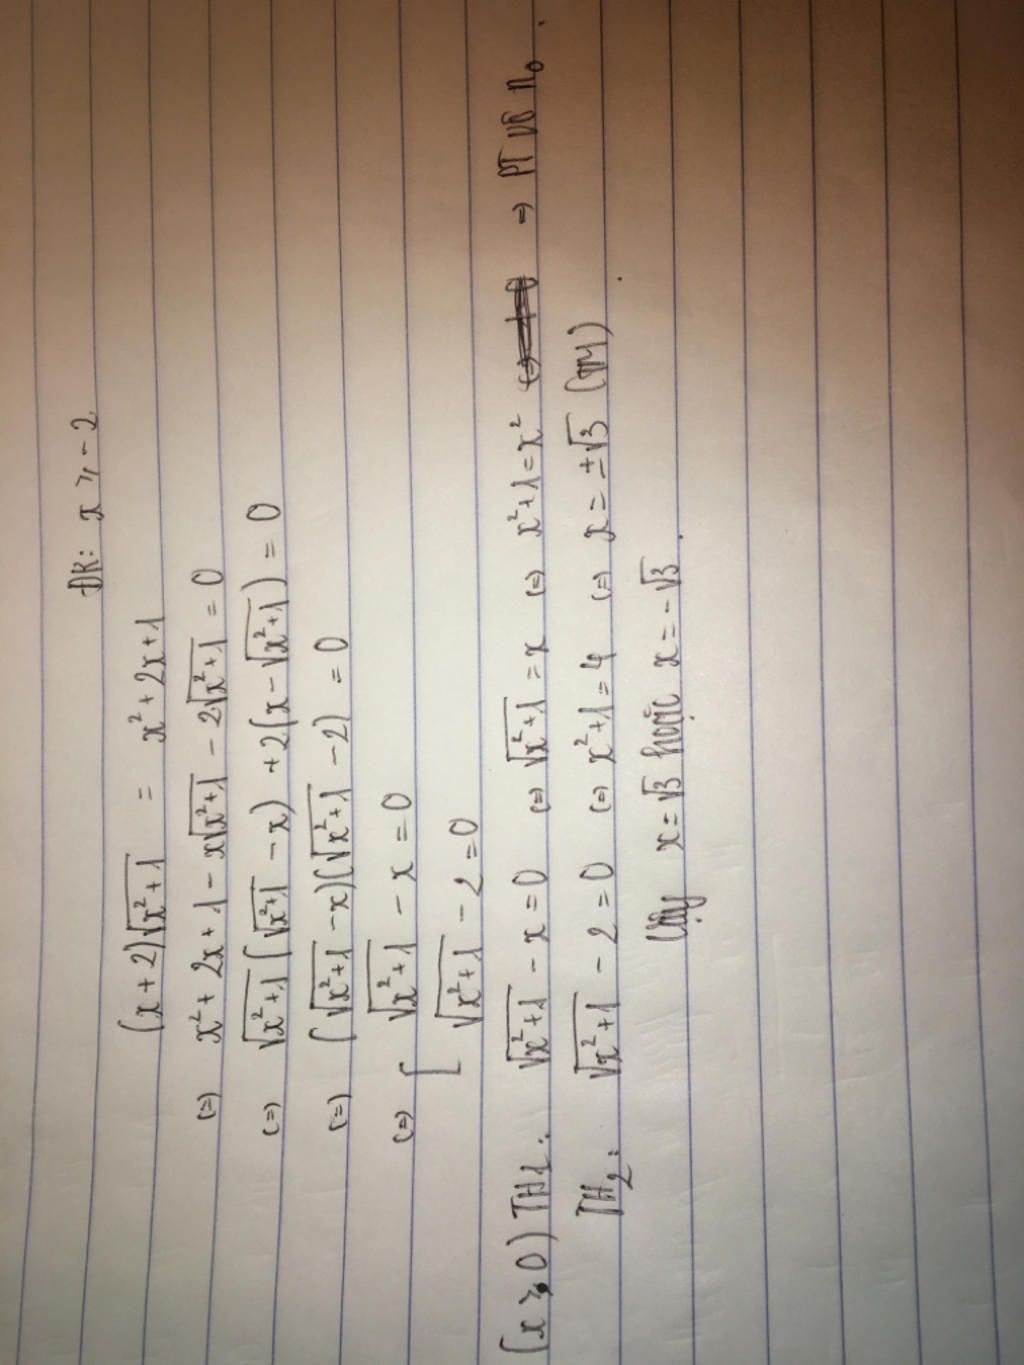 ĐK: x ⩾ -2
(x+2)√(x²+1) = x²+2x+1
(=) x²+2x+1-x√(x²+1) - 2√(x²+1) = 0
(=) √(x²+1) (√(x²+1) - x) + 2(x-√(x²+1)) = 0
(=) (√(x²+1) - x)(√(x²+1) - 2) = 0
(=) [ √(x²+1) - x = 0
√(x²+1) - 2 = 0
(x ⩾ 0) TH1: √(x²+1) - x = 0 (=) √(x²+1) = x (=) x²+1=x² => PT vô n₀.
TH2: √(x²+1) - 2 = 0 (=) x²+1 = 4 (=) x = ±√3 (TM)
Vậy x=√3 hoặc x = -√3.